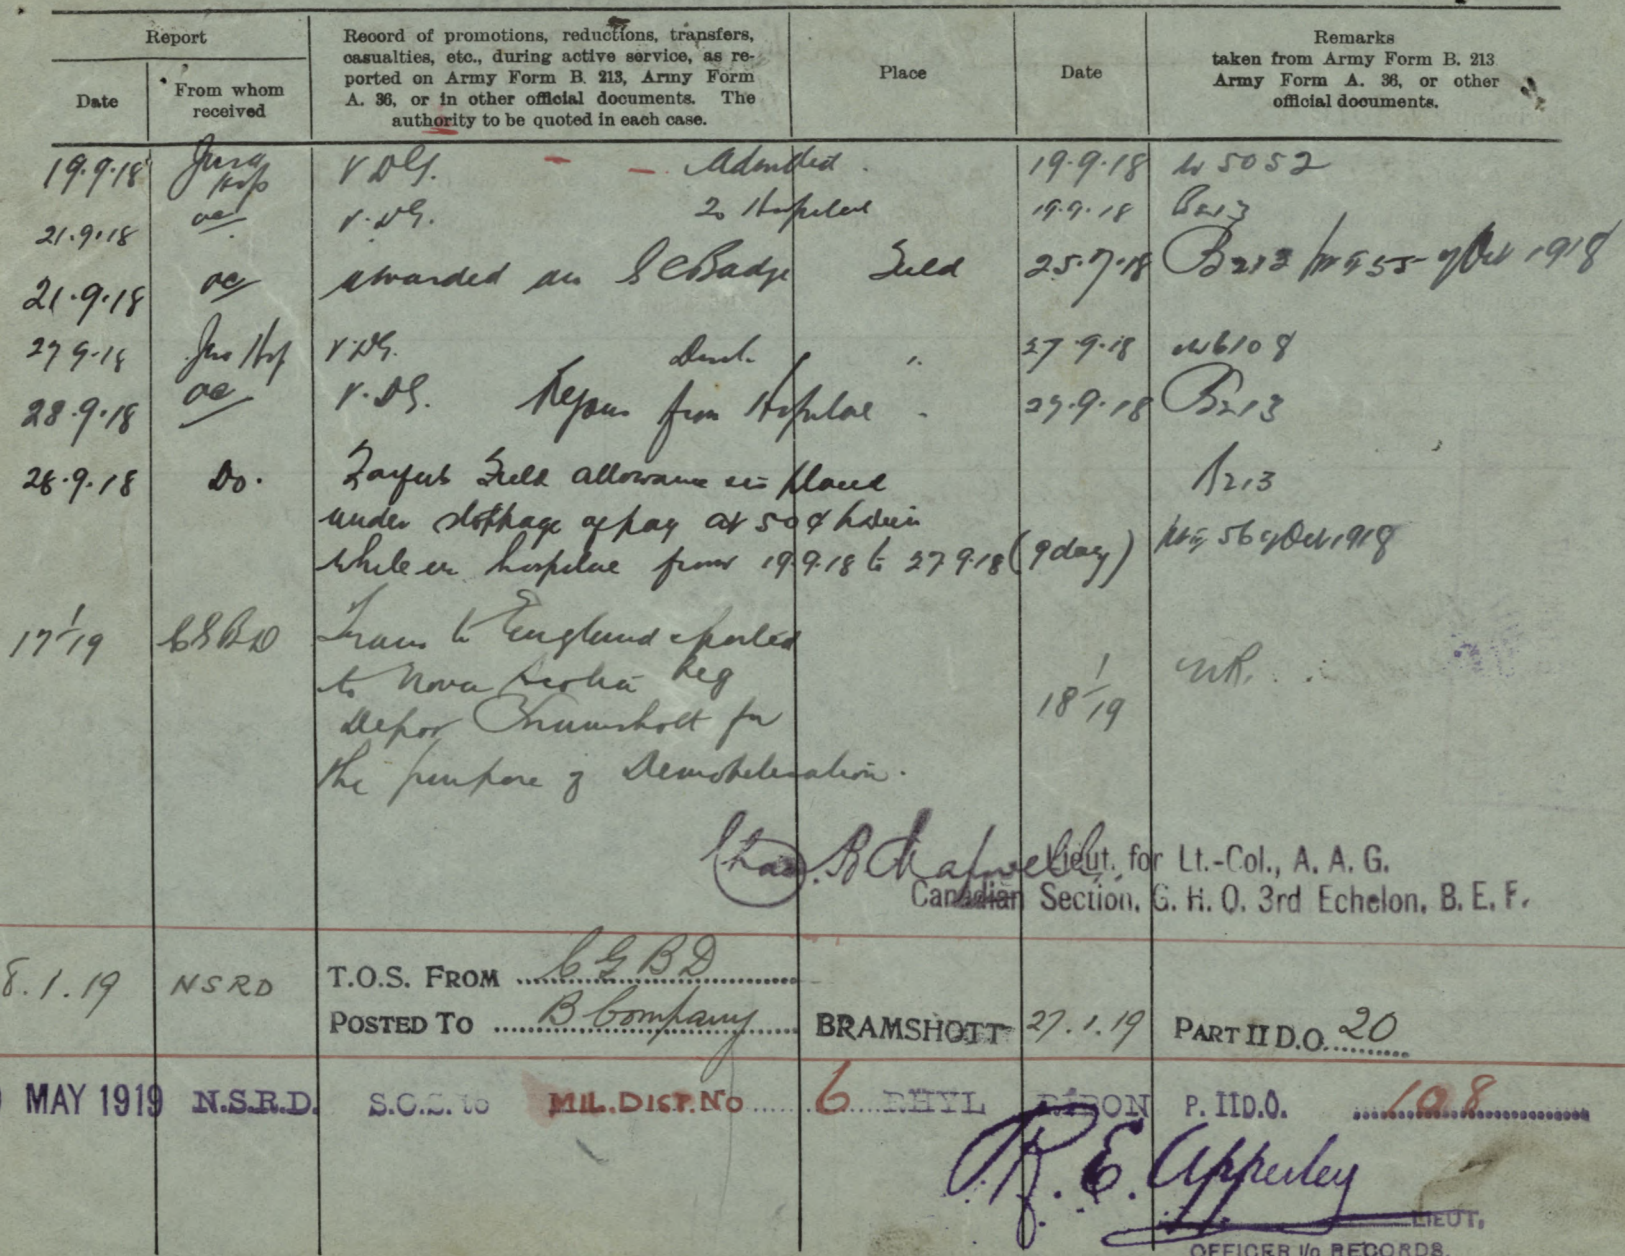 Report
Record of promotions, reductions, transfers,
casualties, etc., during active service, as re-
ported on Army Form B. 213, Army Form
A. 36, or in other official documents. The
authority to be quoted in each case.
Place
Date
Remarks
taken from Army Form B. 213
Army Form A. 36, or other
official documents.
Date
From whom
received
19.9.18 Hosp V.D.G. Admitted 19.9.18 W 5052
21.9.18 oc V.D.G. To Hospital 19.9.18 B213
21.9.18 oc awarded an G C Badge Field 25.7.18 B213 55 of Oct 1918
27.9.18 Hosp V.D.G. Disch " 27.9.18 W6108
28.9.18 oc V.D.G. Rejoins from Hospital " 27.9.18 B213
28.9.18 Do. Forfeits Field allowance & is placed B213
under stoppage of pay at 50¢ per diem
while in hospital from 19.9.18 to 27.9.18 (9 days) 56 of Oct 1918
17/1/19 C G B D Trans to England & posted
to Nova Scotia Reg 18/1/19 NR.
Depot Bramshott for
the purpose of Demobilization.
Chas. B
Lieut. for Lt.-Col., A. A. G.
Canadian Section, G. H. Q. 3rd Echelon, B. E. F.
8.1.19 NSRD T.O.S. FROM C G B D
POSTED TO B Company BRAMSHOTT 27.1.19 PART II D.O. 20
MAY 1919 N.S.R.D. S.O.S. to MIL. DIST. No 6 RHYL RIPON P. II D.O. 108
R. E. Apperley
LIEUT,
OFFICER i/c RECORDS.